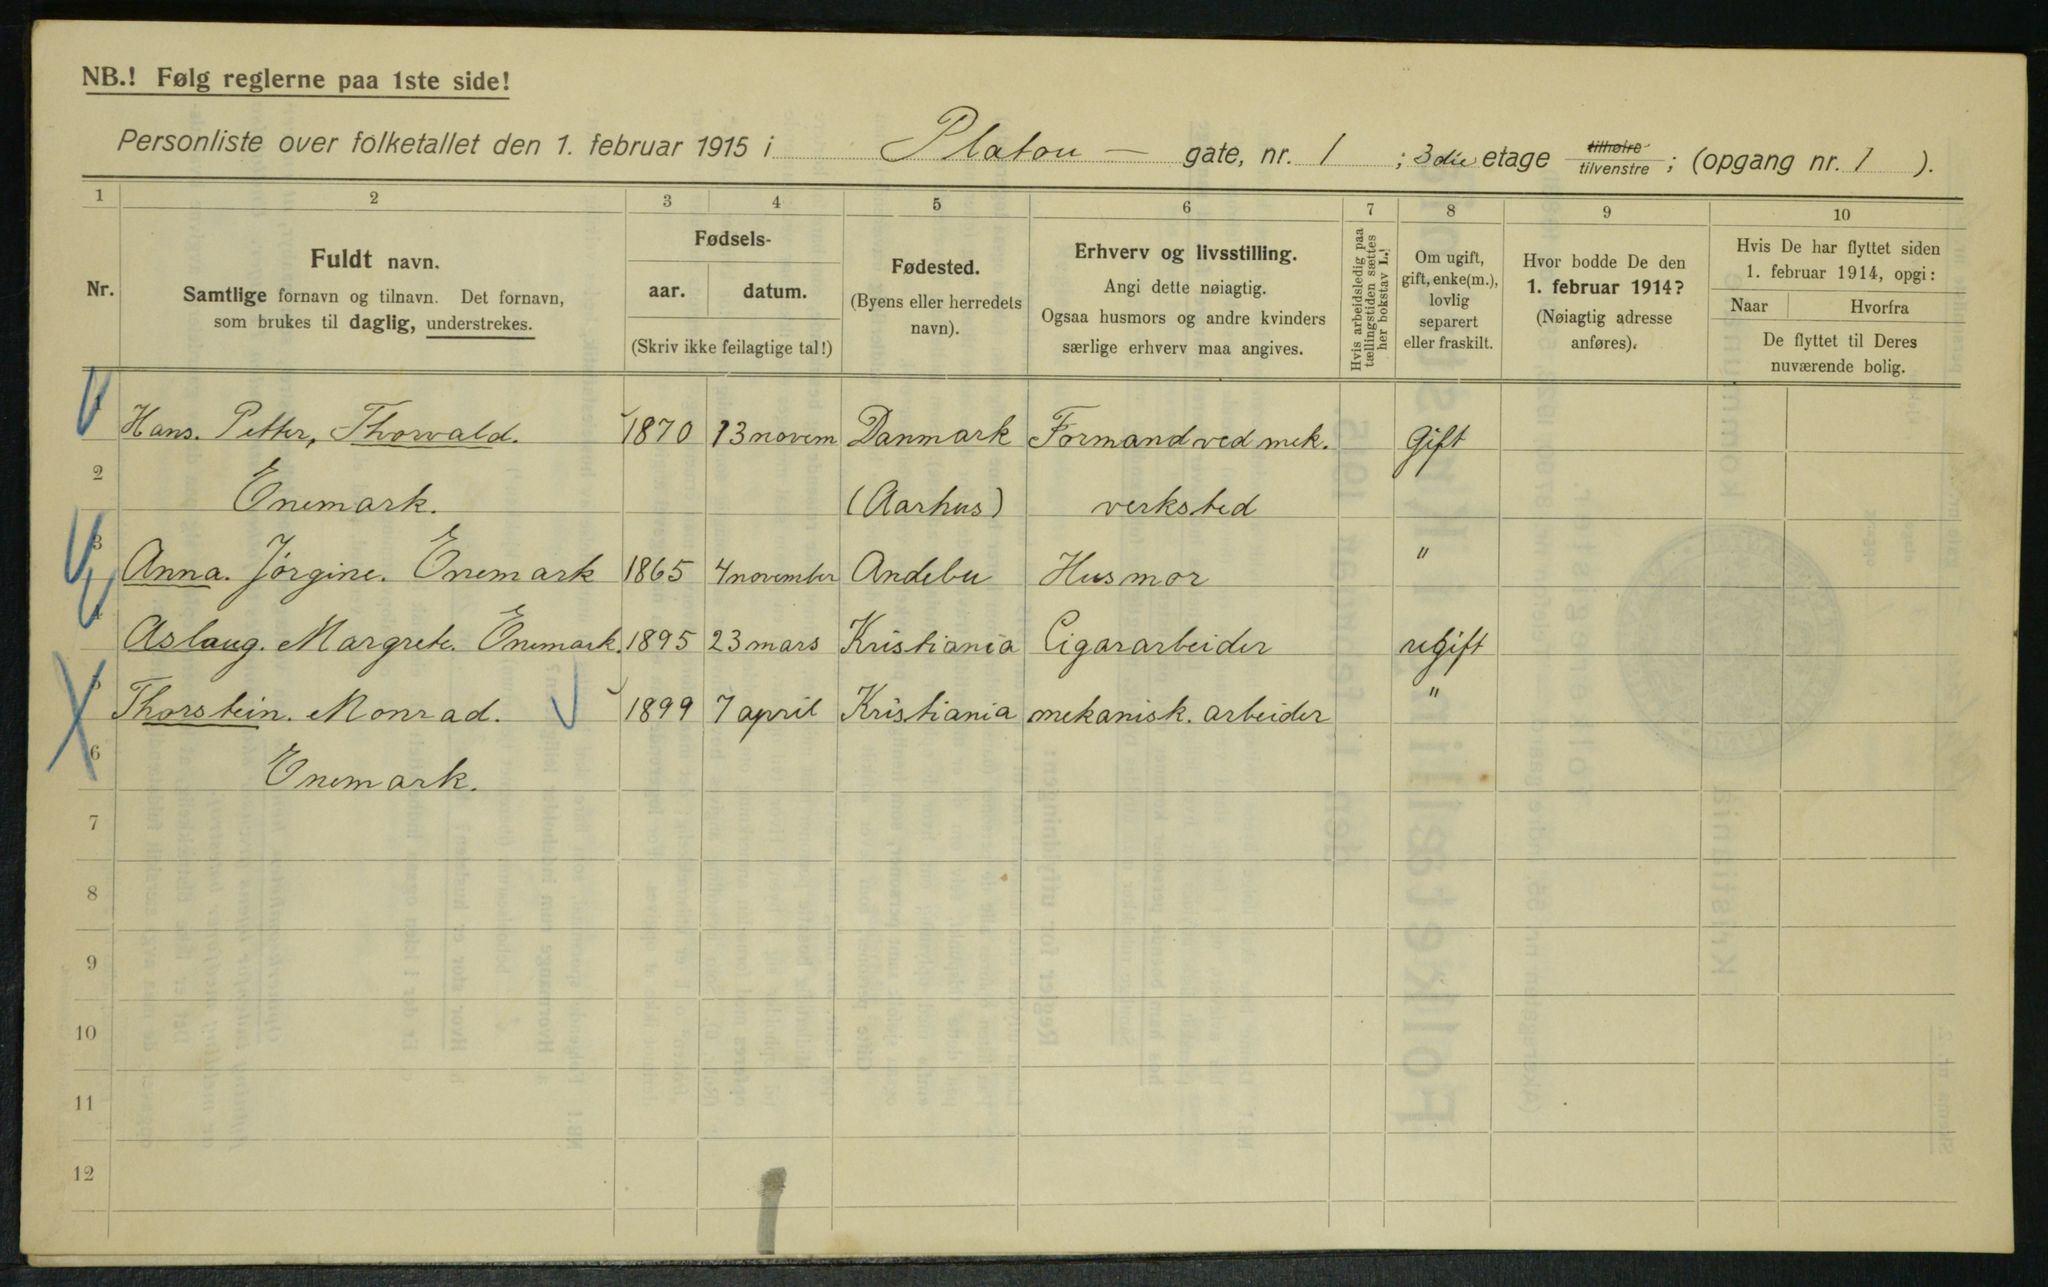 NB.! Følg reglerne paa 1ste side!
Personliste over folketallet den 1. februar 1915 i Platou — gate, nr. 1 ; 3die etage tilhøire tilvenstre ; (opgang nr. 1 ).
1 2 3 4 5 6 7 8 9 10
Nr.
Fuldt navn.
Samtlige fornavn og tilnavn. Det fornavn,
som brukes til daglig, understrekes.
Fødsels-
aar. datum.
(Skriv ikke feilagtige tal!)
Fødested.
(Byens eller herredets
navn).
Erhverv og livsstilling.
Angi dette nøiagtig.
Ogsaa husmors og andre kvinders
særlige erhverv maa angives.
Hvis arbeidsledig paa
tællingstiden sættes
her bokstav L.
Om ugift,
gift, enke(m.),
lovlig
separert
eller fraskilt.
Hvor bodde De den
1. februar 1914?
(Nøiagtig adresse
anføres).
Hvis De har flyttet siden
1. februar 1914, opgi:
Naar Hvorfra
De flyttet til Deres
nuværende bolig.
1 Hans. Petter, Thorvald. 1870 13 novem Danmark Formand ved mek. Gift
2 Enemark. (Aarhus) verksted
3 Anna. Jørgine. Enemark 1865 4 november Andebu Husmor "
4 Aslaug. Margrete. Enemark. 1895 23 mars Kristiania Cigararbeider ugift
5 Thorstein. Monrad. 1899 7 april Kristiania mekanisk. arbeider "
6 Enemark.
7
8
9
10
11
12